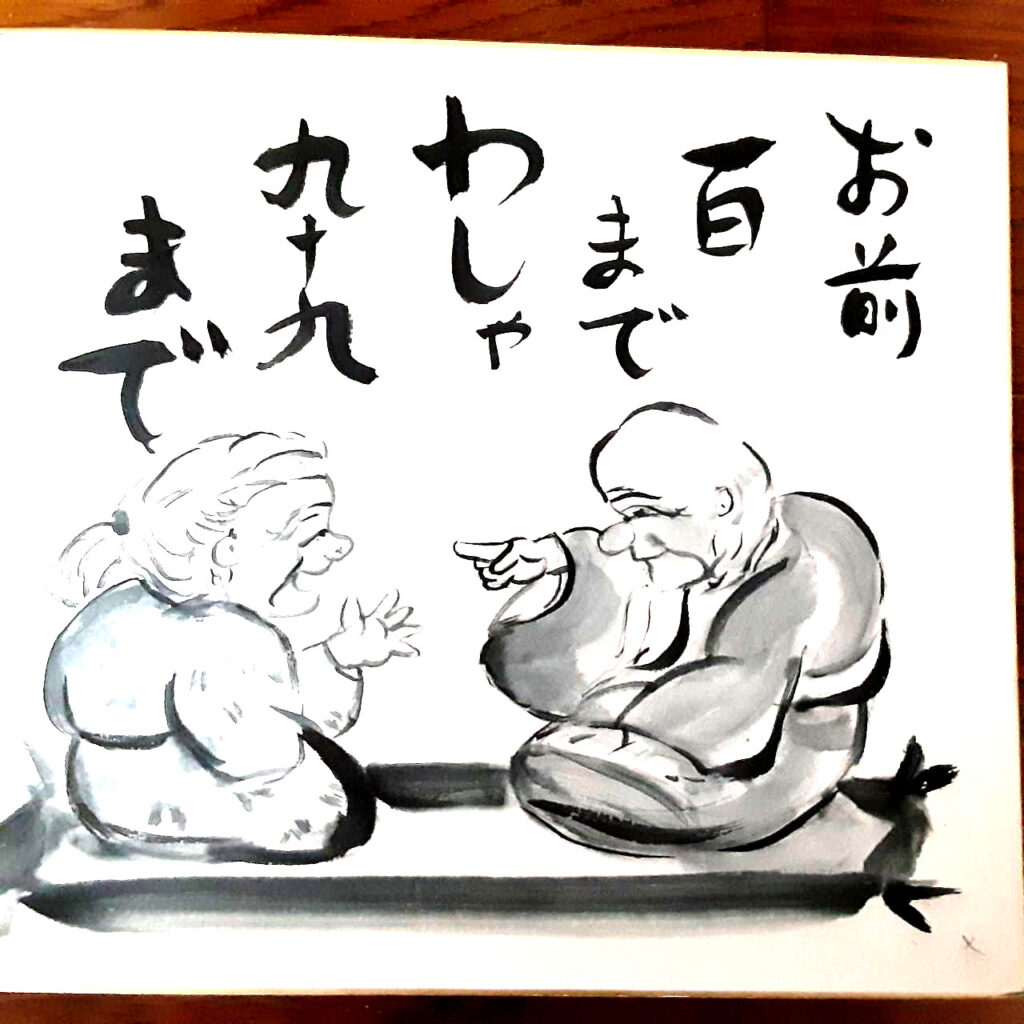 お前
百
まで
わしゃ
九十九
まで